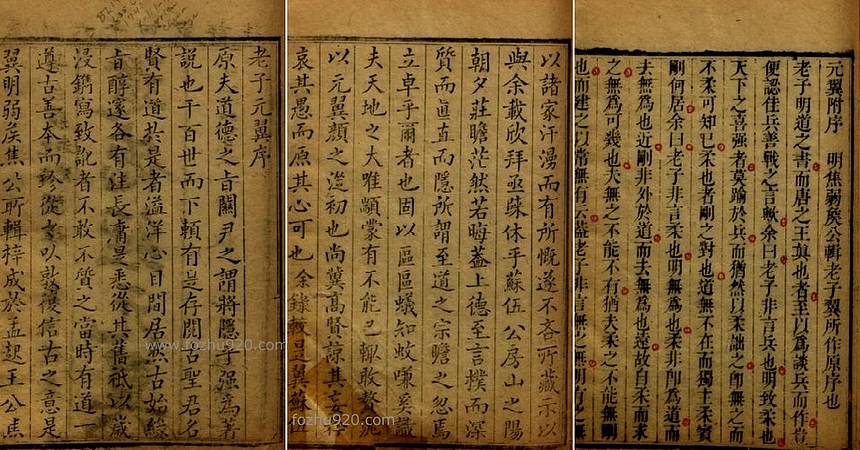 老子元翼序
原夫道德之旨關尹之謂將隱乎强為著
說也千百世而下賴有是存閱古聖君名
賢有道於是者溢洋心目間居然古始緣
旨醇邃各有注長庸是悉從其舊祇以歲
浸鐫寫致訛者不敢不質之當時有道一
遵古善本而從之以敦復信古之意是
翼明弱矦焦公所輯梓成於孟起王公焦
以諸家汗漫而有所慨遂不吝所藏示以
與余載欣拜亟休乎蘇伍公房山之陽
朝夕莊瞻茫然若晦蓋上德至言樸而深
質而眞直而隱所謂至道之宗瞻之忽焉
立卓乎爾者也固以區區蟻知蚊嗛奚識
夫天地之大唯顓蒙有不能已輙敢贅
以元翼顏之從初也尚冀高賢諒其妄
哀其愚而原其心可也余錄輙是翼蘇
元翼附序　明焦弱矦公輯老子翼所作原序也
老子明道之書而唐之王眞也者至以為談兵而作豈
便認佳兵善戰之言歟余曰老子非言兵也明致柔也
天下之喜强者莫踰於兵而猶然以柔詘之卽無之而
不柔可知已柔也者剛之對也道無不在而獨主柔賓
剛何居余曰老子非言柔也明無為也柔非卽為道而
去無為也近剛非外於道而去無為也遠故自柔而求
之無為可幾也夫無之不能不有猶夫柔之不能無剛
也而建之以常無有云蓋老子非言無之無明有之無
www.fozhu920.com
fozhu920.com